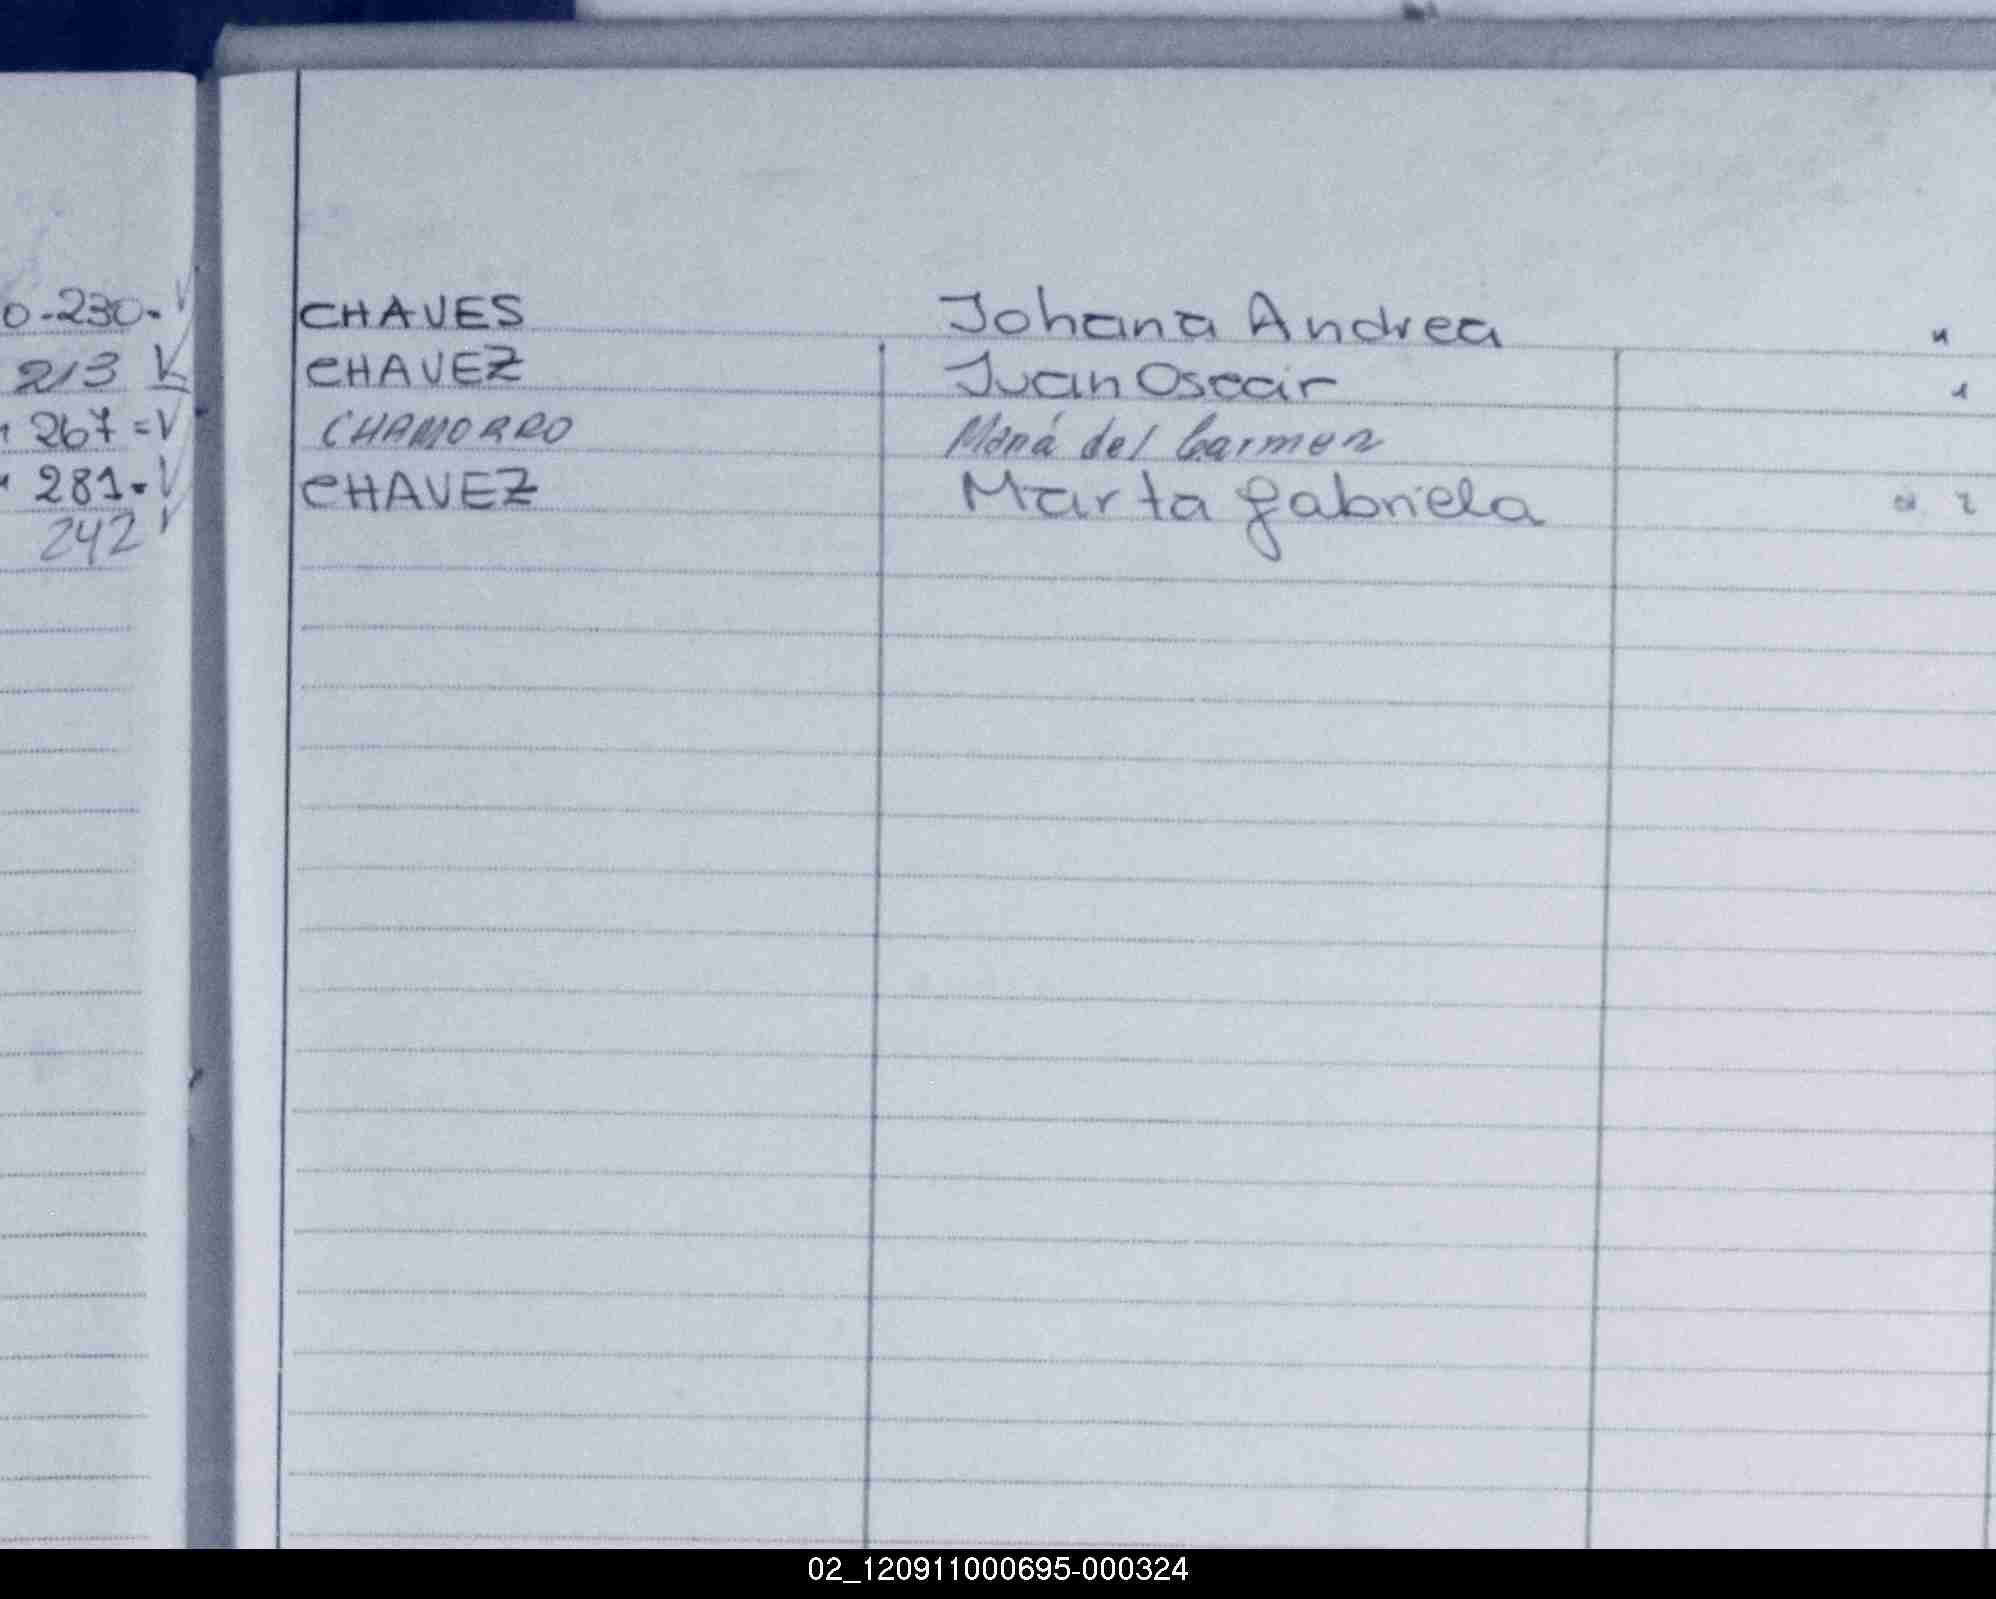 0-230-
213
267=
281-
242
CHAVES Johana Andrea
CHAVEZ Juan Oscar
CHAMORRO María del Carmen
CHAVEZ Marta Gabriela
02_120911000695-000324